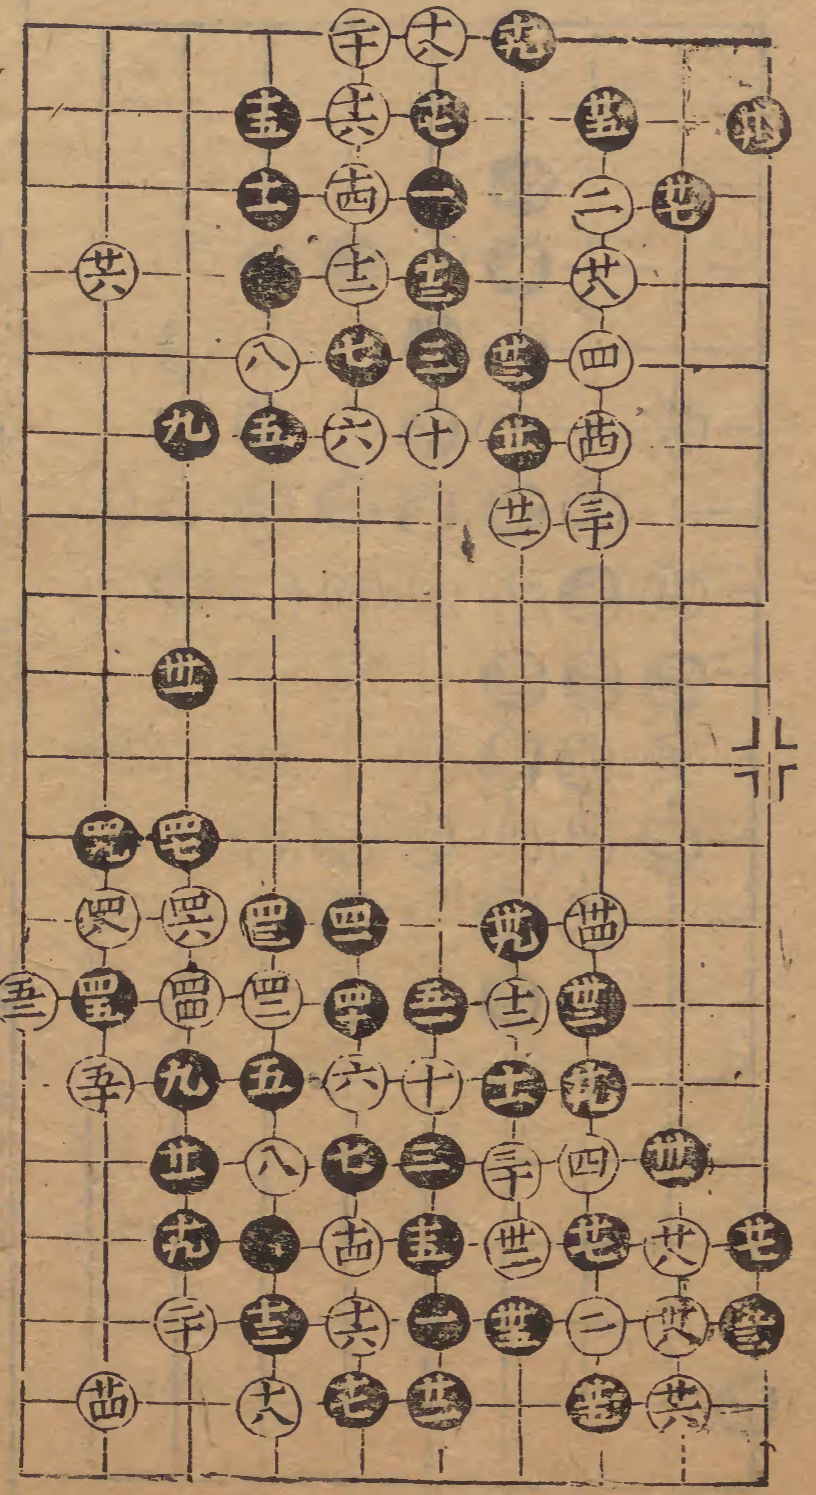 二十 十八 十九
十五 十六 十七 廿五 廿九
十一 十四 一 二 廿七
廿六 十二 十三 廿八
八 七 三 廿三 四
九 五 六 十 廿一 廿四
廿二 三十
卅一
四九 四七
四八 四六 四三 四一 卅九 卅四
五二 四五 四四 四二 四十 五一 十二 卅三
五十 九 五 六 十 十一 廿九
廿一 八 七 三 三十 四 卅一
十九 十四 十五 卅二 廿七 廿八 卅七
二十 十三 十六 一 卅五 二 卅八
廿四 十八 十七 廿三 廿五 廿六